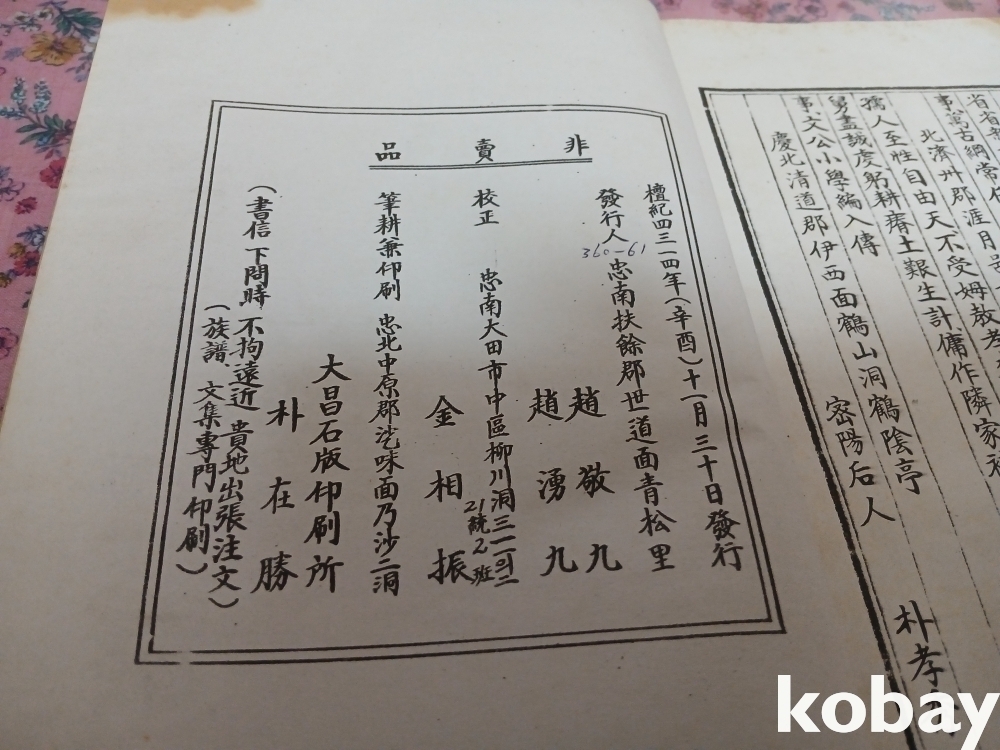 省省
事萬古綱常
北濟州郡涯月
孺人至性自由天不受姆敎孝
舅盡誠度躬耕瘠土艱生計傭作隣家
事文公小學編入傳
慶北清道郡伊西面鶴山洞鶴陰亭
密陽后人
朴孝
非賣品
檀紀四三一四年(辛酉)十一月三十日發行
發行人 忠南扶餘郡世道面靑松里
360-61
趙敬九
趙湧九
校正 忠南大田市中區柳川洞三一一의二
21統2班
金相振
筆耕兼印刷 忠北中原郡沲味面乃沙二洞
大昌石版印刷所
朴在勝
(書信下問時不拘遠近 貴地出張注文)
(族譜、文集專門印刷)
kobay